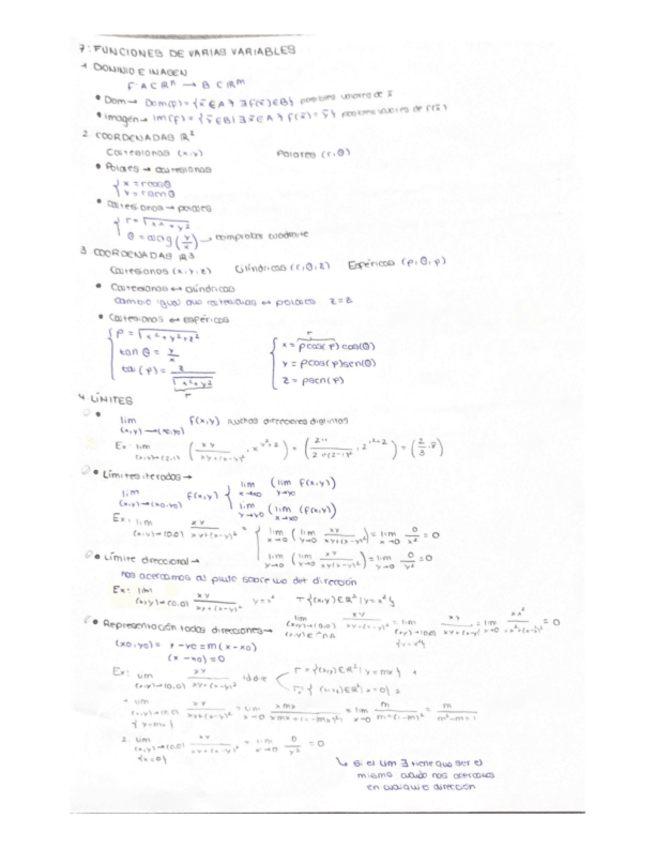 7: FUNCIONES DE VARIAS VARIABLES
1. DOMINIO E IMAGEN
F: A ⊂ ℝⁿ → B ⊂ ℝᵐ
• Dom → Dom(f) = {x̄ ∈ A / ∃ f(x̄) ∈ B} posibles valores de x̄
• Imagen → Im(f) = {ȳ ∈ B / ∃ x̄ ∈ A / f(x̄) = ȳ} posibles valores de f(x̄)
2. COORDENADAS ℝ²
Cartesianas (x,y) Polares (r,θ)
• Polares → cartesianas
{ x = rcosθ
y = rsenθ
• Cartesianas → polares
{ r = √(x²+y²)
θ = arctg(y/x) → comprobar cuadrante
3. COORDENADAS ℝ³
Cartesianas (x,y,z) Cilíndricas (r,θ,z) Esféricas (ρ,θ,φ)
• Cartesianas ↔ cilíndricas
cambio igual que cartesianas ↔ polares z=z
• Cartesianas ↔ esféricas
{ ρ = √(x²+y²+z²)
tan θ = y/x
tan(φ) = z/√(x²+y²)
r
r
{ x = ρcos(φ)cos(θ)
y = ρcos(φ)sen(θ)
z = ρsen(φ)
4. LÍMITES
• lim (x,y)→(x0,y0) f(x,y) muchas direcciones distintas
Ex: lim (x,y)→(2,1) (xy/(xy+(x-y)²), x^(y²+2)) = = (2/3, 8)
• Límites iterados →
lim (x,y)→(x0,y0) f(x,y) { lim x→x0 (lim y→y0 f(x,y))
lim y→y0 (lim x→x0 (f(x,y))
Ex: lim (x,y)→(0,0) xy/(xy+(x-y)²) = { lim x→0 (lim y→0 xy/(xy+(x-y)²)) = lim x→0 0/x² = 0
lim y→0 (lim x→0 xy/(xy+(x-y)²)) = lim y→0 0/y² = 0
• Límite direccional →
nos acercamos al punto sobre una det dirección
Ex: lim (x,y)→(0,0) xy/(xy+(x-y)²) y=x² T={(x,y)∈ℝ² | y=x²}
lim (x,y)→(0,0) xy/(xy+(x-y)²) = lim (x,y)→(0,0) xy/(xy+(x-y)²) = lim x→0 = 0
• Representación todas direcciones →
(x0,y0) = y-y0 = m(x-x0)
(x-x0) = 0
Ex: lim (x,y)→(0,0) xy/(xy+(x-y)²) T={(x,y)∈ℝ² | y=mx} 1
{(x,y)∈ℝ² | x=0} 2
1. lim (x,y)→(0,0) {y=mx} xy/(xy+(x-y)²) = lim x→0 = lim x→0 m/(m+(1-m)²) = m/(m²-m+1)
2. lim (x,y)→(0,0) {x=0} xy/(xy+(x-y)²) = lim y→0 0/y² = 0
↳ Si el lim ∃ tiene que ser el
mismo cuando nos acercamos
en cualquier dirección